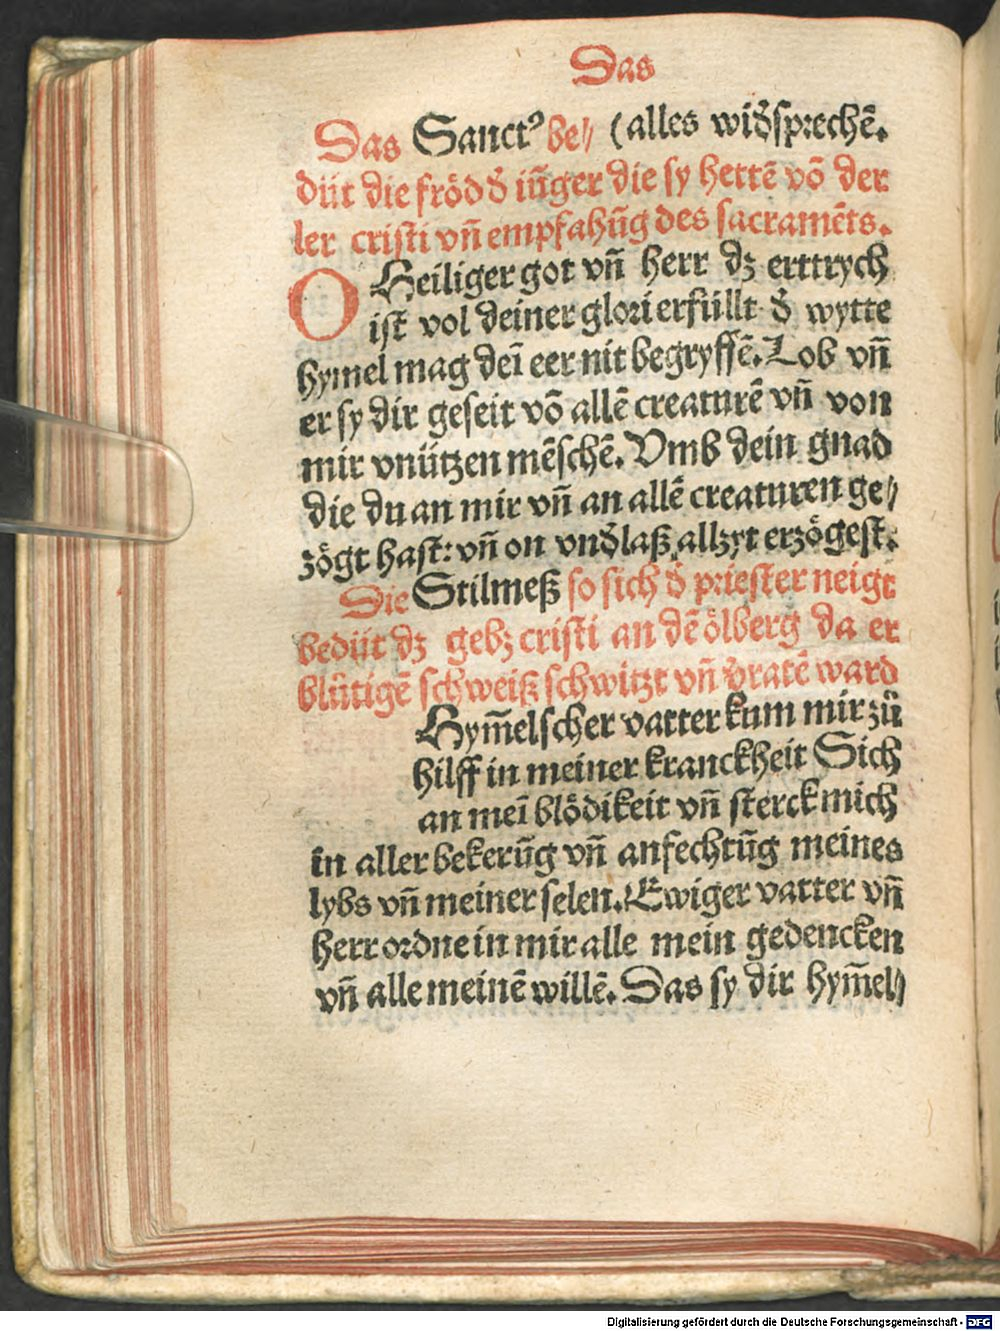 Das
Das Sanctꝰ be⸗ (alles widsprechē.
düt die fröd d iūger die sy hettē vō der
ler cristi vñ empfahūg des sacramēts.
O Heiliger got vñ herr dz erttrych
ist vol deiner glori erfüllt d wytte
hymel mag deī eer nit begryffē. Lob vñ
er sy dir geseit vō allē creaturē vñ von
mir vnützen mēschē. Vmb dein gnad
die du an mir vñ an allē creaturen ge⸗
zögt hast: vñ on vndlaß allzyt erzögest.
Die Stilmeß so sich d priester neigt
bedüt dz gebz cristi an dē ölberg da er
blůtigē schweiß schwitzt vñ vratē ward
Hym̄elscher vatter kum mir zů
hilff in meiner kranckheit Sich
an meī blödikeit vñ sterck mich
in aller bekerūg vñ anfechtūg meines
lybs vñ meiner selen. Ewiger vatter vñ
herr ordne in mir alle mein gedencken
vñ alle meinē willē. Das sy dir hym̄el⸗
Digitalisierung gefördert durch die Deutsche Forschungsgemeinschaft - DFG